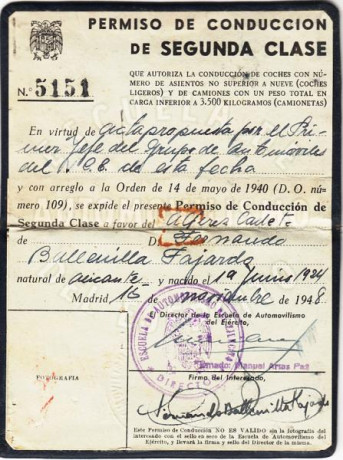 PERMISO DE CONDUCCION
DE SEGUNDA CLASE
QUE AUTORIZA LA CONDUCCIÓN DE COCHES CON NÚ-
MERO DE ASIENTOS NO SUPERIOR A NUEVE (COCHES
LIGEROS) Y DE CAMIONES CON UN PESO TOTAL EN
CARGA INFERIOR A 3.500 KILOGRAMOS (CAMIONETAS)
N.º 5151
En virtud de propuesta por el Pri-
mer Jefe del Grupo de Automóviles
del de esta fecha
y con arreglo a la Orden de 14 de mayo de 1940 (D. O. nú-
mero 109), se expide el presente Permiso de Conducción de
Segunda Clase a favor del Alferez Cadete
D. Fernando
Ballenilla Fajardo
natural de alicante y nacido el 19 Junio 1924
Madrid, 16 de noviembre de 1948
El Director de la Escuela de Automovilismo
del Ejército,
ESCUELA DE AUTOMOVILISMO DEL EJERCITO
DIRECTOR
Firmado: Manuel Arias Paz
FOTOGRAFIA
Firma del interesado,
Fernando Ballenilla Fajardo
Este Permiso de Conducción NO ES VALIDO sin la fotografía del
interesado con el sello en seco de la Escuela de Automovilismo del
Ejército, y llevará la firma y sello del Director de la misma.